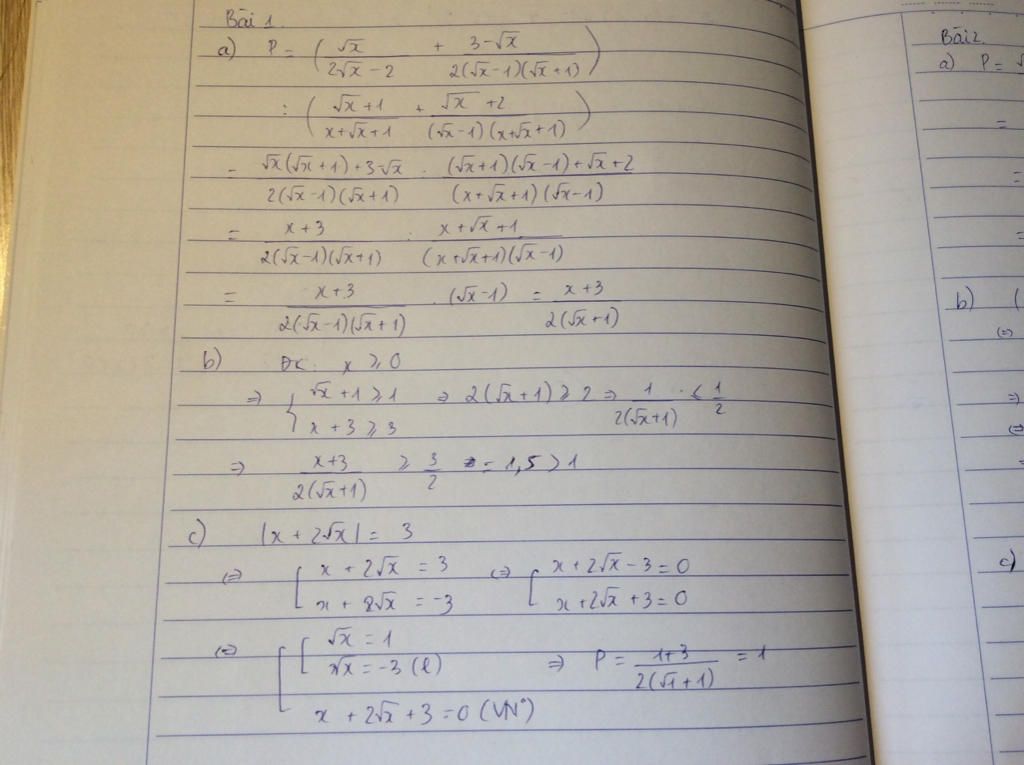 Bài 1.
a) P = ( √x / (2√x - 2) + (3 - √x) / (2(√x - 1)(√x + 1)) )
: ( (√x + 1) / (x + √x + 1) + (√x + 2) / ((√x - 1)(x + √x + 1)) )
= (√x(√x + 1) + 3 - √x) / (2(√x - 1)(√x + 1)) : ((√x + 1)(√x - 1) + √x + 2) / ((x + √x + 1)(√x - 1))
= (x + 3) / (2(√x - 1)(√x + 1)) : (x + √x + 1) / ((x + √x + 1)(√x - 1))
= (x + 3) / (2(√x - 1)(√x + 1)) . (√x - 1) = (x + 3) / (2(√x + 1))
b) ĐK: x ≥ 0
⇒ { √x + 1 ≥ 1 ⇒ 2(√x + 1) ≥ 2 ⇒ 1 / (2(√x + 1)) ≤ 1/2
x + 3 ≥ 3
⇒ (x + 3) / (2(√x + 1)) ≥ 3/2 = 1,5 > 1
c) |x + 2√x| = 3
⇔ [ x + 2√x = 3 ⇔ [ x + 2√x - 3 = 0
x + 2√x = -3 x + 2√x + 3 = 0
⇔ [ [ √x = 1
√x = -3 (l) ⇒ P = (1 + 3) / (2(√1 + 1)) = 1
x + 2√x + 3 = 0 (VN°)
Bài 2.
a) P = √
=
=
=
b) (
⇔
⇒
⇔
⇒
c)